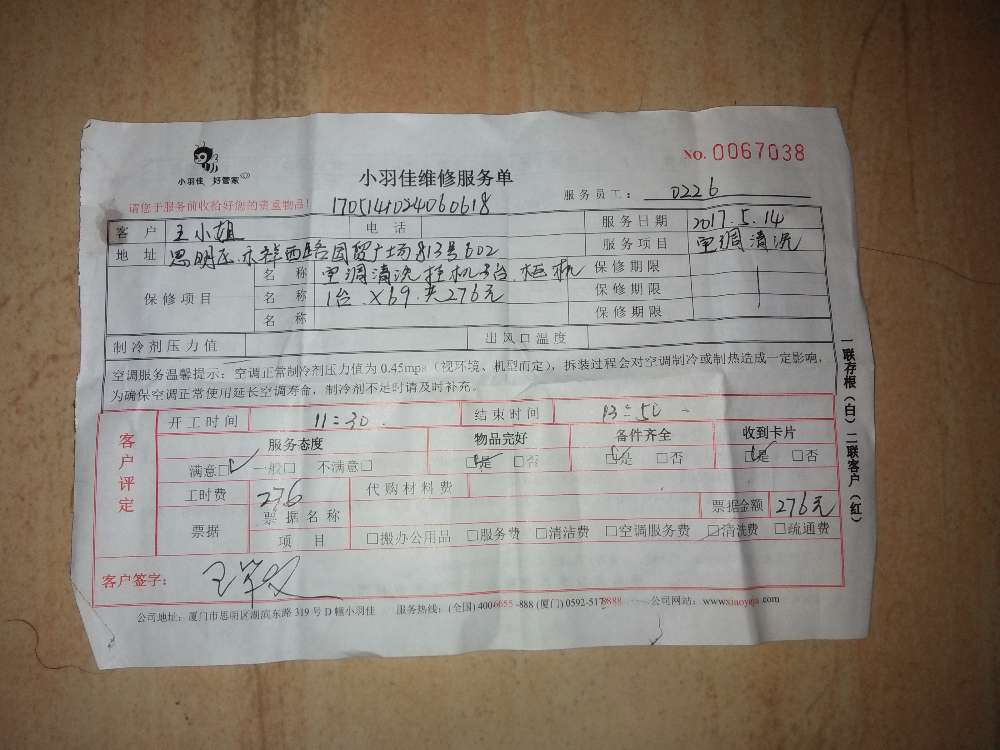 NO. 0067038
小羽佳 好管家
小羽佳维修服务单
服务员工： 0226
请您于服务前收拾好您的贵重物品！
1705141024060618
客户 王小姐 电话 服务日期 2017.5.14
地址 思明区 西路国贸广场813号602 服务项目 空调清洗
保修项目
名称 空调清洗 柜机 台 保修期限
名称 1台 ×69 共276元 保修期限
名称 保修期限
制冷剂压力值 出风口温度
空调服务温馨提示：空调正常制冷剂压力值为 0.45mpa（视环境、机型而定），拆装过程会对空调制冷或制热造成一定影响，
为确保空调正常使用延长空调寿命，制冷剂不足时请及时补充。
客户评定
开工时间 11:30 结束时间 13:50
服务态度 物品完好 备件齐全 收到卡片
满意□ 一般□ 不满意□ □是 □否 □是 □否 □是 □否
工时费 276 代购材料费
票据 票据名称 票据金额 276元
项目 □搬办公用品 □服务费 □清洁费 □空调服务费 □清洗费 □疏通费
客户签字： 王
公司地址：厦门市思明区湖滨东路 319 号 D 幢小羽佳 服务热线：(全国) 4006655-888 (厦门) 0592-5178888 公司网站：www.xiaoyujia.com
一联存根（白）二联客户（红）